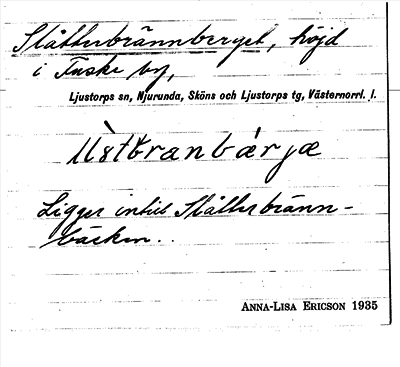 Slåtterbrännberget, höjd
i Fuske by,
Ljustorps sn, Njurunda, Sköns och Ljustorps tg, Västernorrl. l.
Ligger intill Slåtterbränn-
bäcken..
ANNA-LISA ERICSON 1935